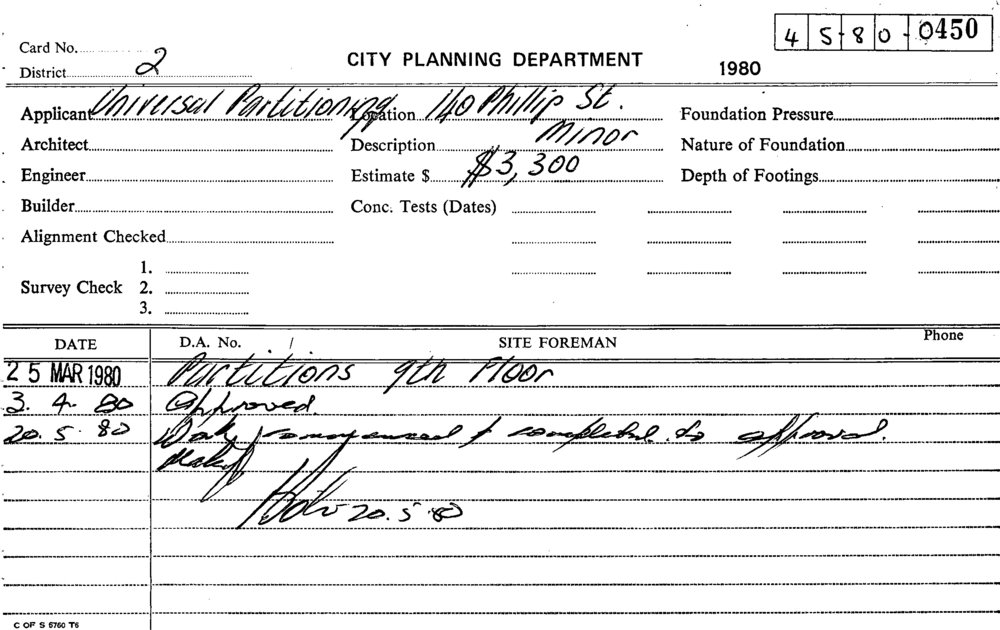 45-80-0450
Card No.
District 2
CITY PLANNING DEPARTMENT
1980
Applicant Universal Partitioning Location 140 Phillip St. Foundation Pressure
Architect Description Minor Nature of Foundation
Engineer Estimate $ $3,300 Depth of Footings
Builder Conc. Tests (Dates)
Alignment Checked
1.
Survey Check 2.
3.
DATE D.A. No. / SITE FOREMAN Phone
25 MAR 1980 Partitions 9th Floor
3. 4. 80 Approved.
20. 5. 80 Work commenced & completed to approval.
20. 5. 80
C OF S 5760 T6